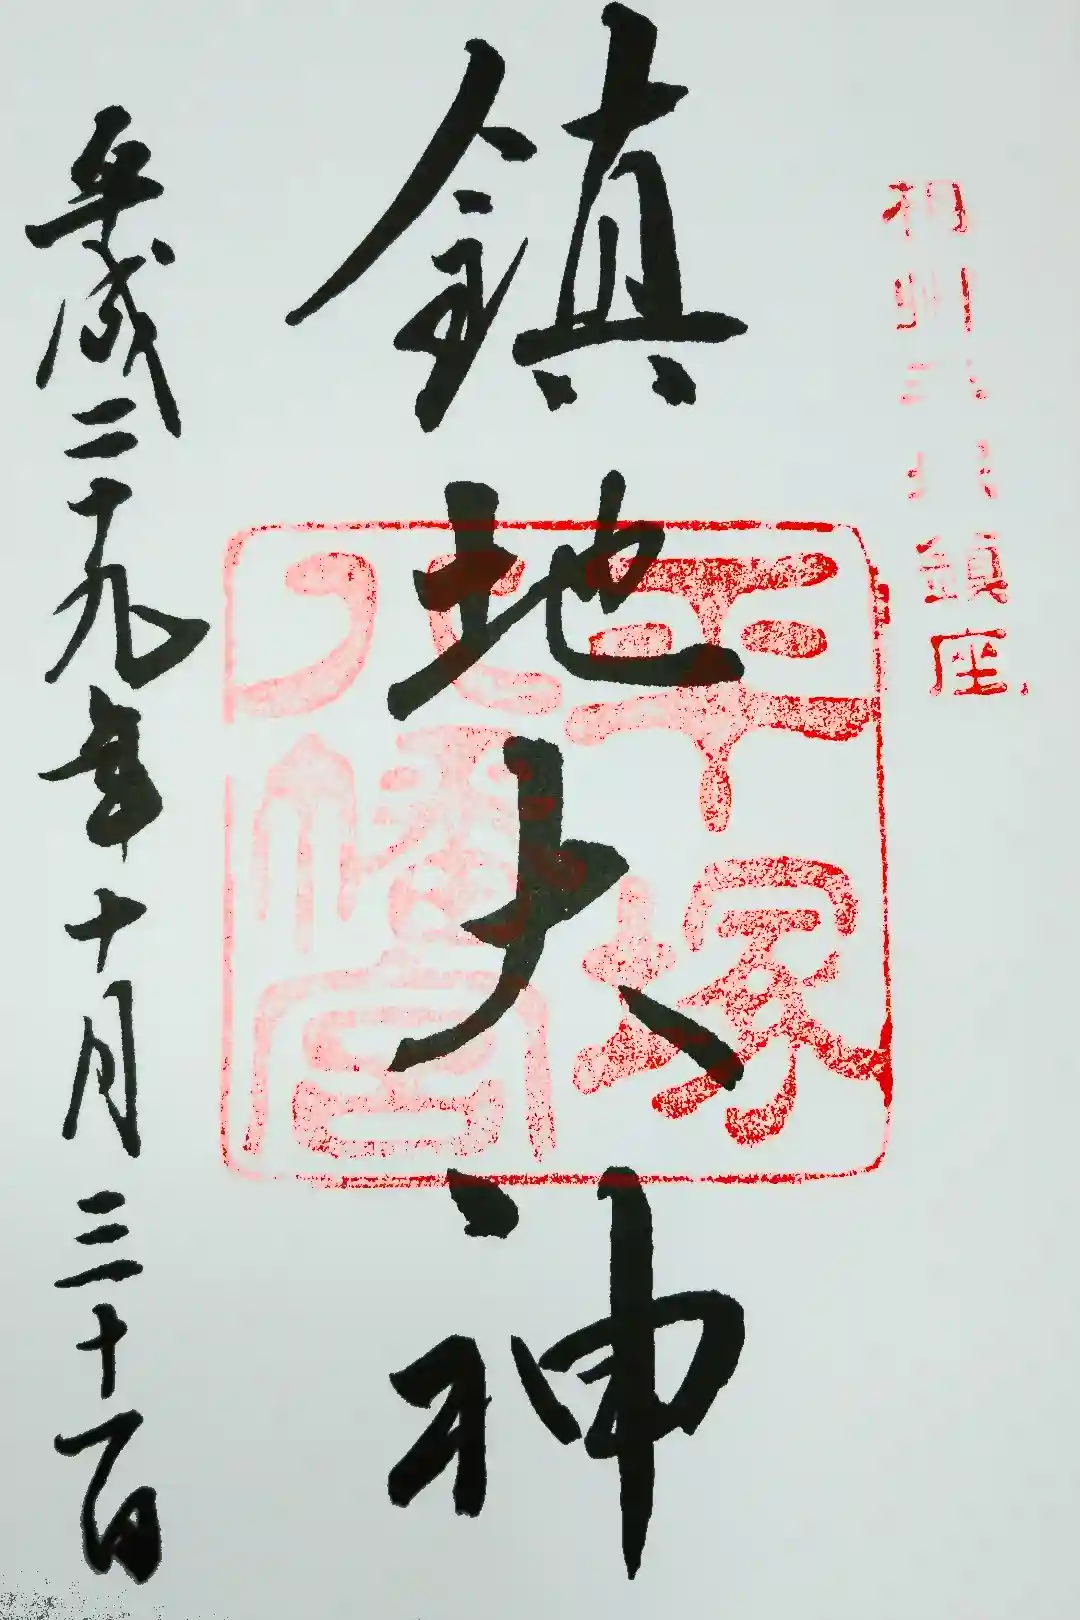 相州鎮座
鎮地大神
平塚
八幡宮
平成二十九年十月三十一日